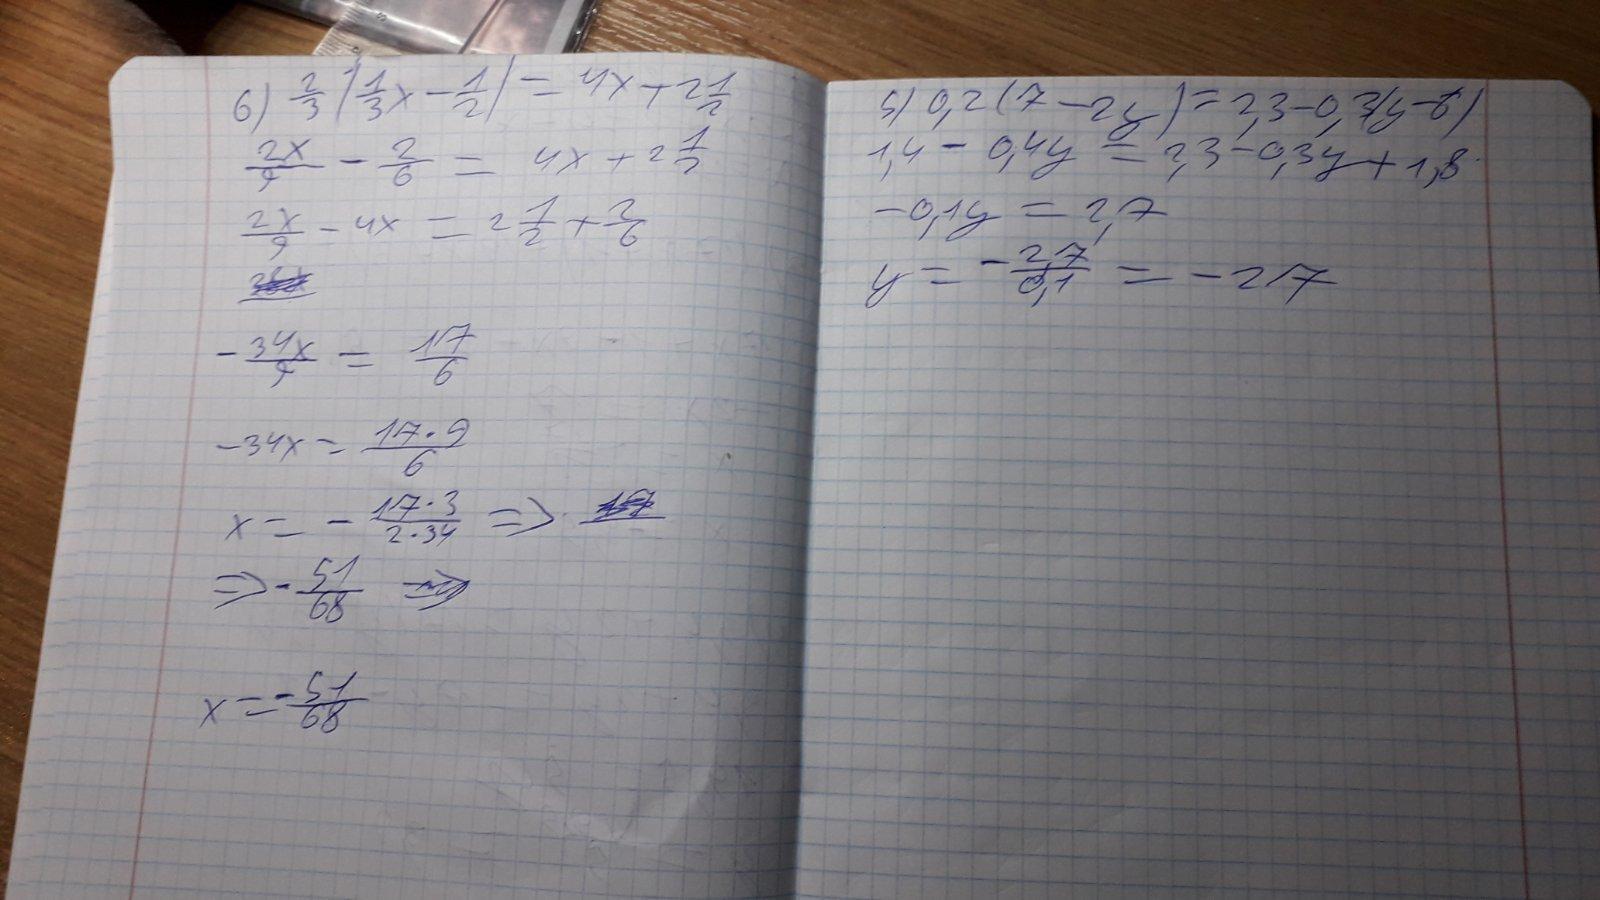 6) 2/3 (1/3 x - 1/2) = 4x + 2 1/2
2x/9 - 2/6 = 4x + 2 1/2
2x/9 - 4x = 2 1/2 + 2/6
- 34x/9 = 17/6
-34x = 17·9/6
x = - 17·3/2·34 =>
=> - 51/68
x = - 51/68
5) 0,2(7 - 2y) = 2,3 - 0,3(y - 6)
1,4 - 0,4y = 2,3 - 0,3y + 1,8
-0,1y = 2,7
y = - 2,7/0,1 = - 27